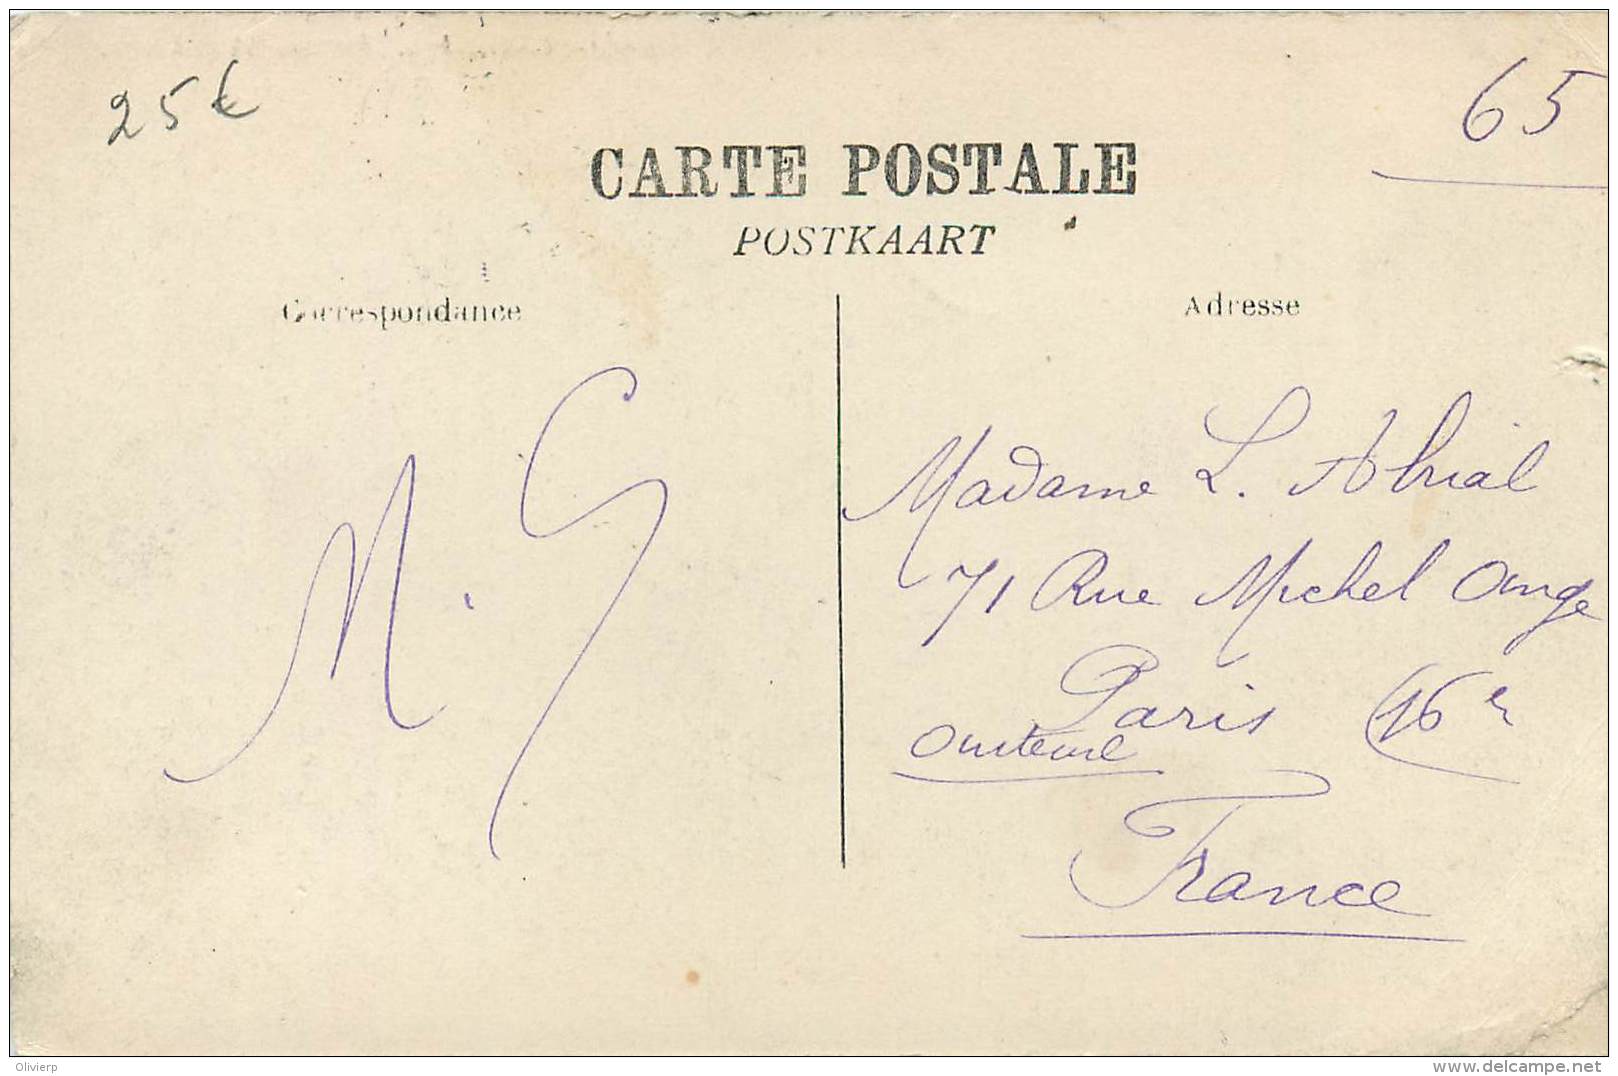 25€
65
CARTE POSTALE
POSTKAART
Correspondance
Adresse
M. G
Madame L. Abrial
71 Rue Michel Ange
Paris 16e
France
Olivierp
www.delcampe.net